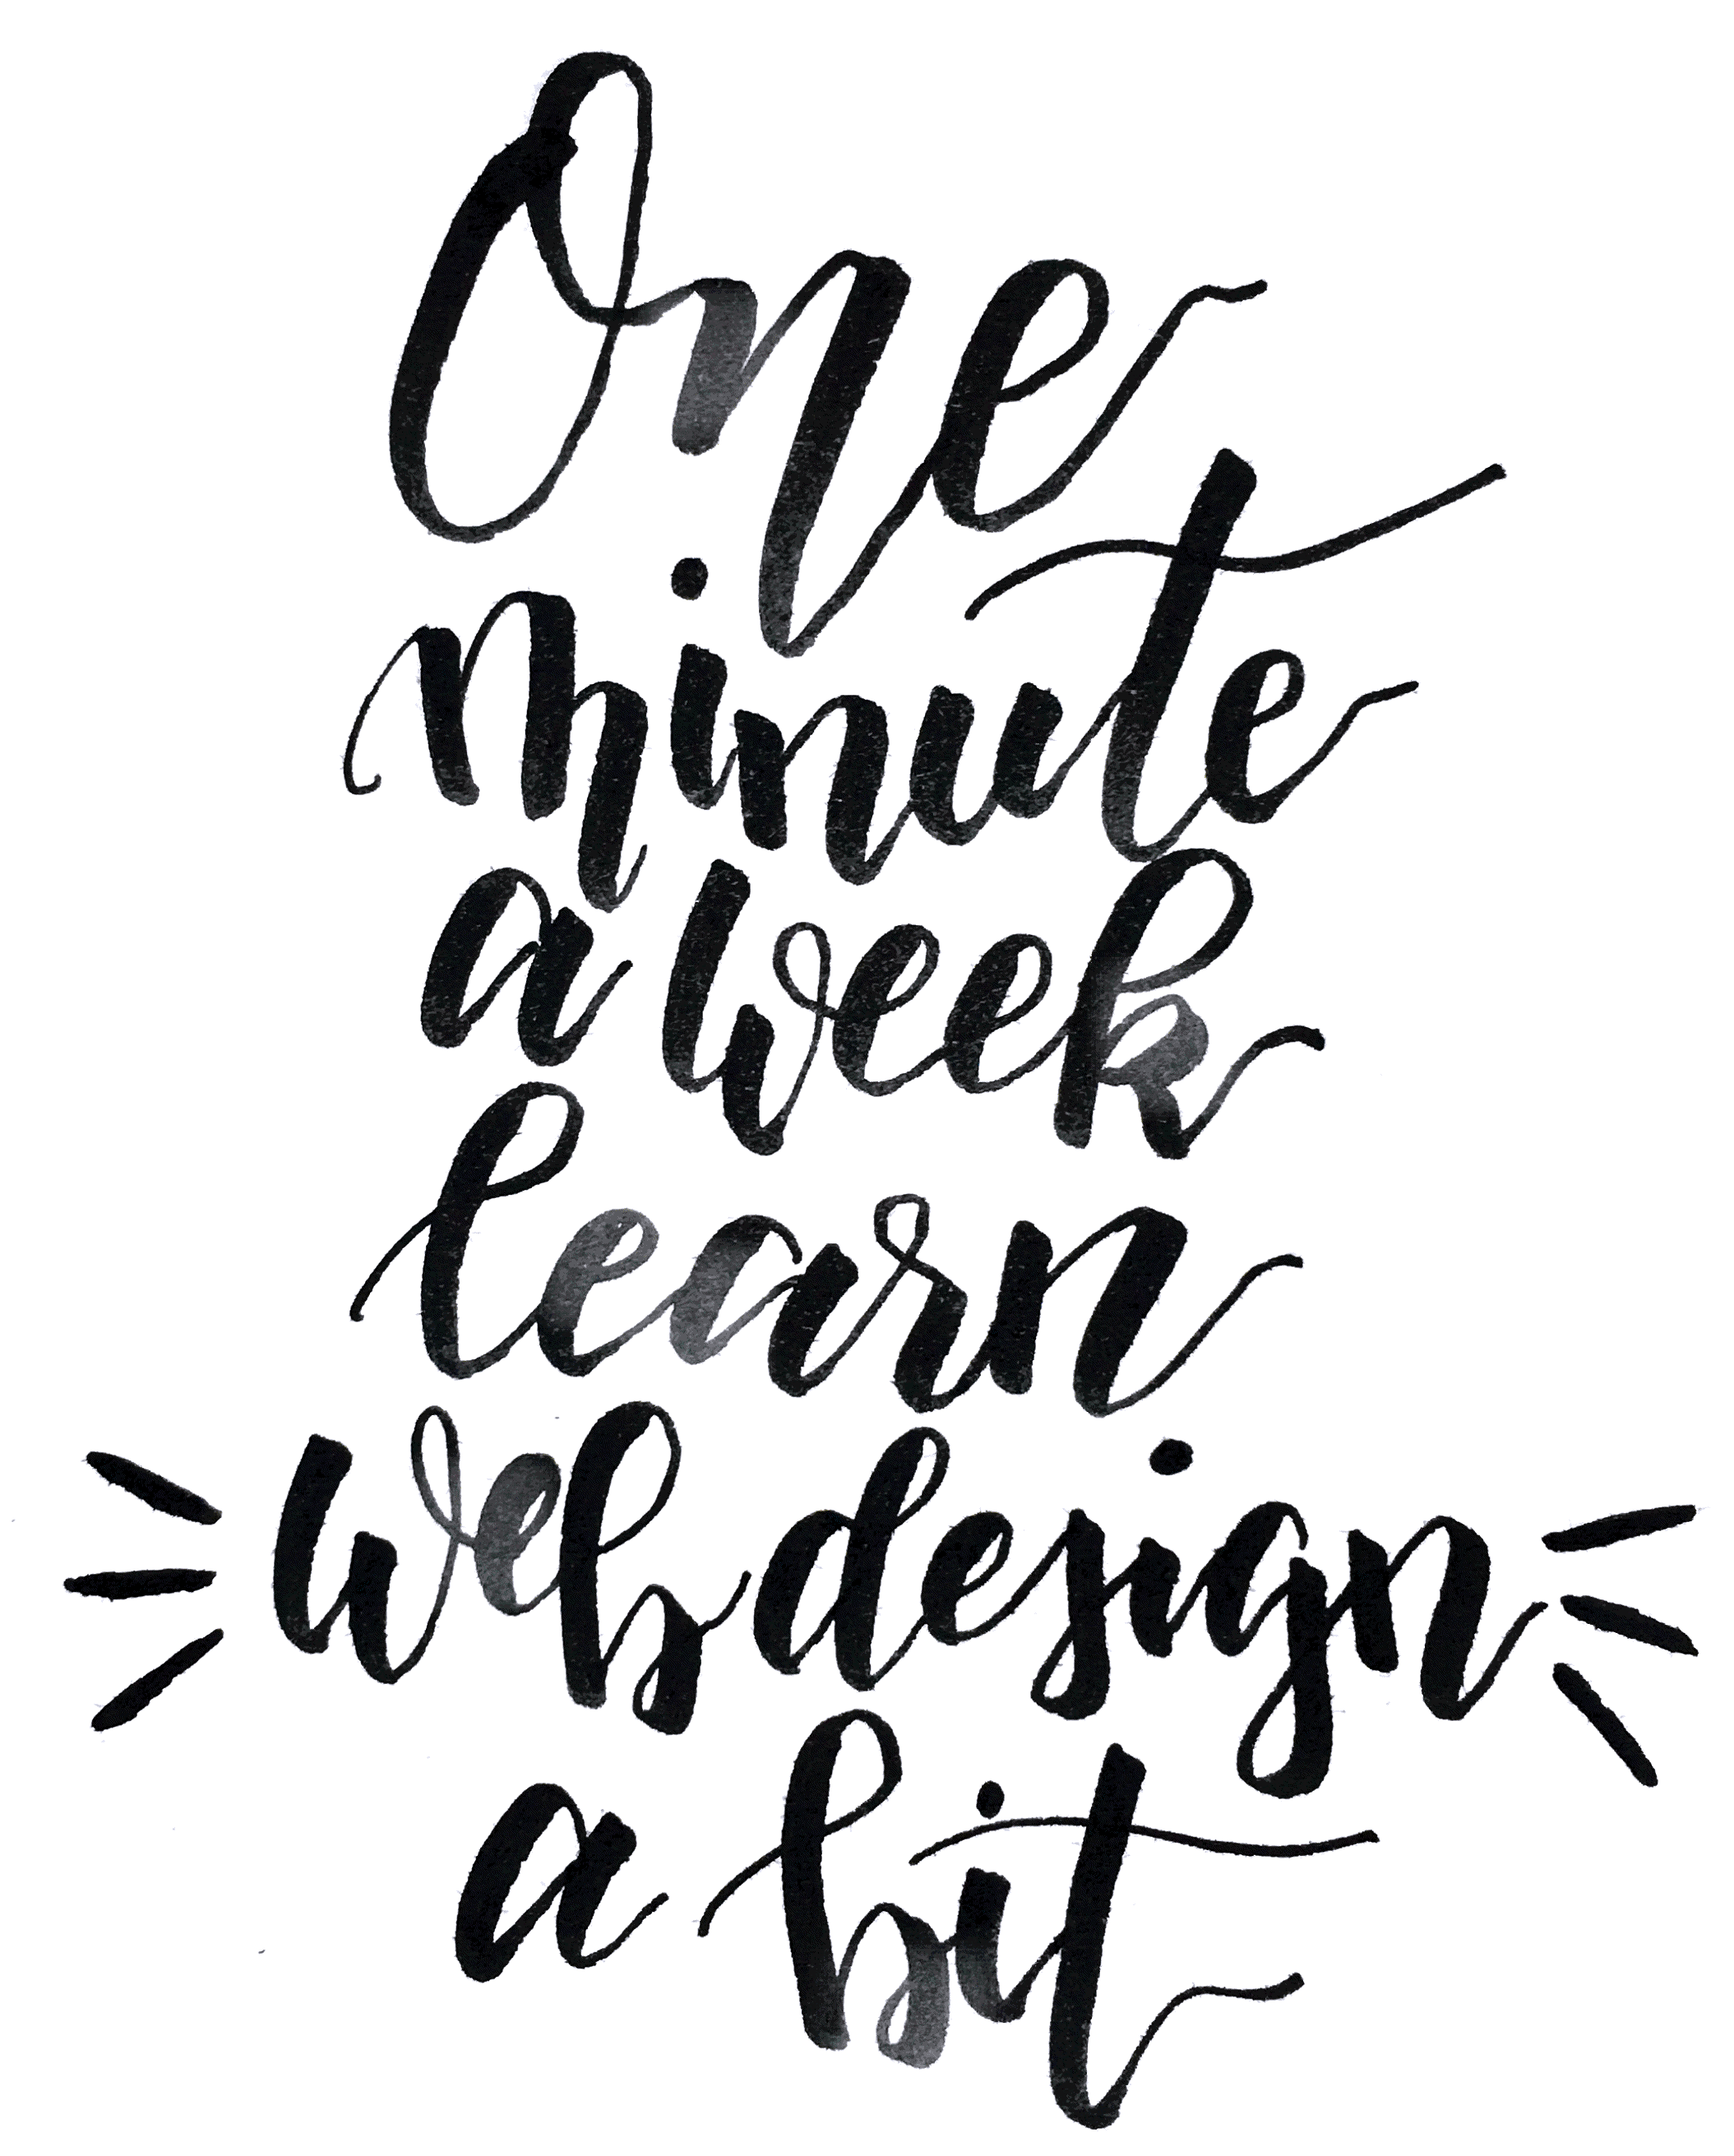 One
minute
a week
learn
web design
a bit